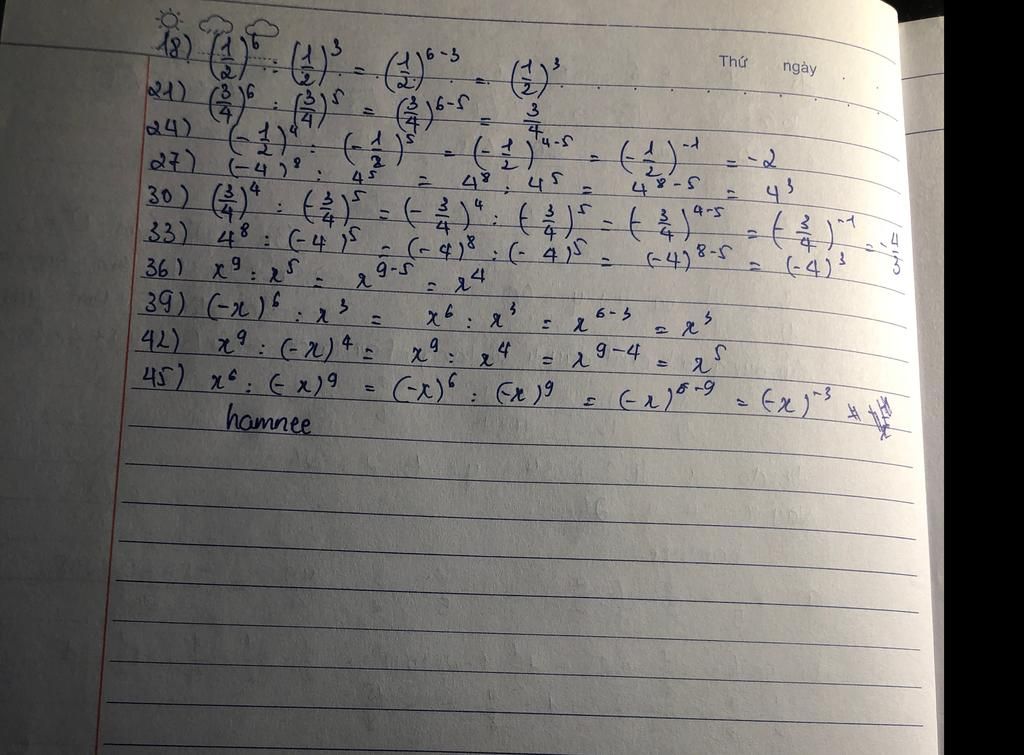 Thứ ngày
18) (1/2)^6 : (1/2)^3 = (1/2)^6-3 = (1/2)^3
21) (3/4)^6 : (3/4)^5 = (3/4)^6-5 = 3/4
24) (-1/2)^4 : (-1/2)^5 = (-1/2)^4-5 = (-1/2)^-1 = -2
27) (-4)^8 : 4^5 = 4^8 : 4^5 = 4^8-5 = 4^3
30) (3/4)^4 : (-3/4)^5 = (-3/4)^4 : (-3/4)^5 = (-3/4)^4-5 = (-3/4)^-1 = -4/3
33) 4^8 : (-4)^5 = (-4)^8 : (-4)^5 = (-4)^8-5 = (-4)^3
36) x^9 : x^5 = x^9-5 = x^4
39) (-x)^6 : x^3 = x^6 : x^3 = x^6-3 = x^3
42) x^9 : (-x)^4 = x^9 : x^4 = x^9-4 = x^5
45) x^6 : (-x)^9 = (-x)^6 : (-x)^9 = (-x)^6-9 = (-x)^-3
hamnee